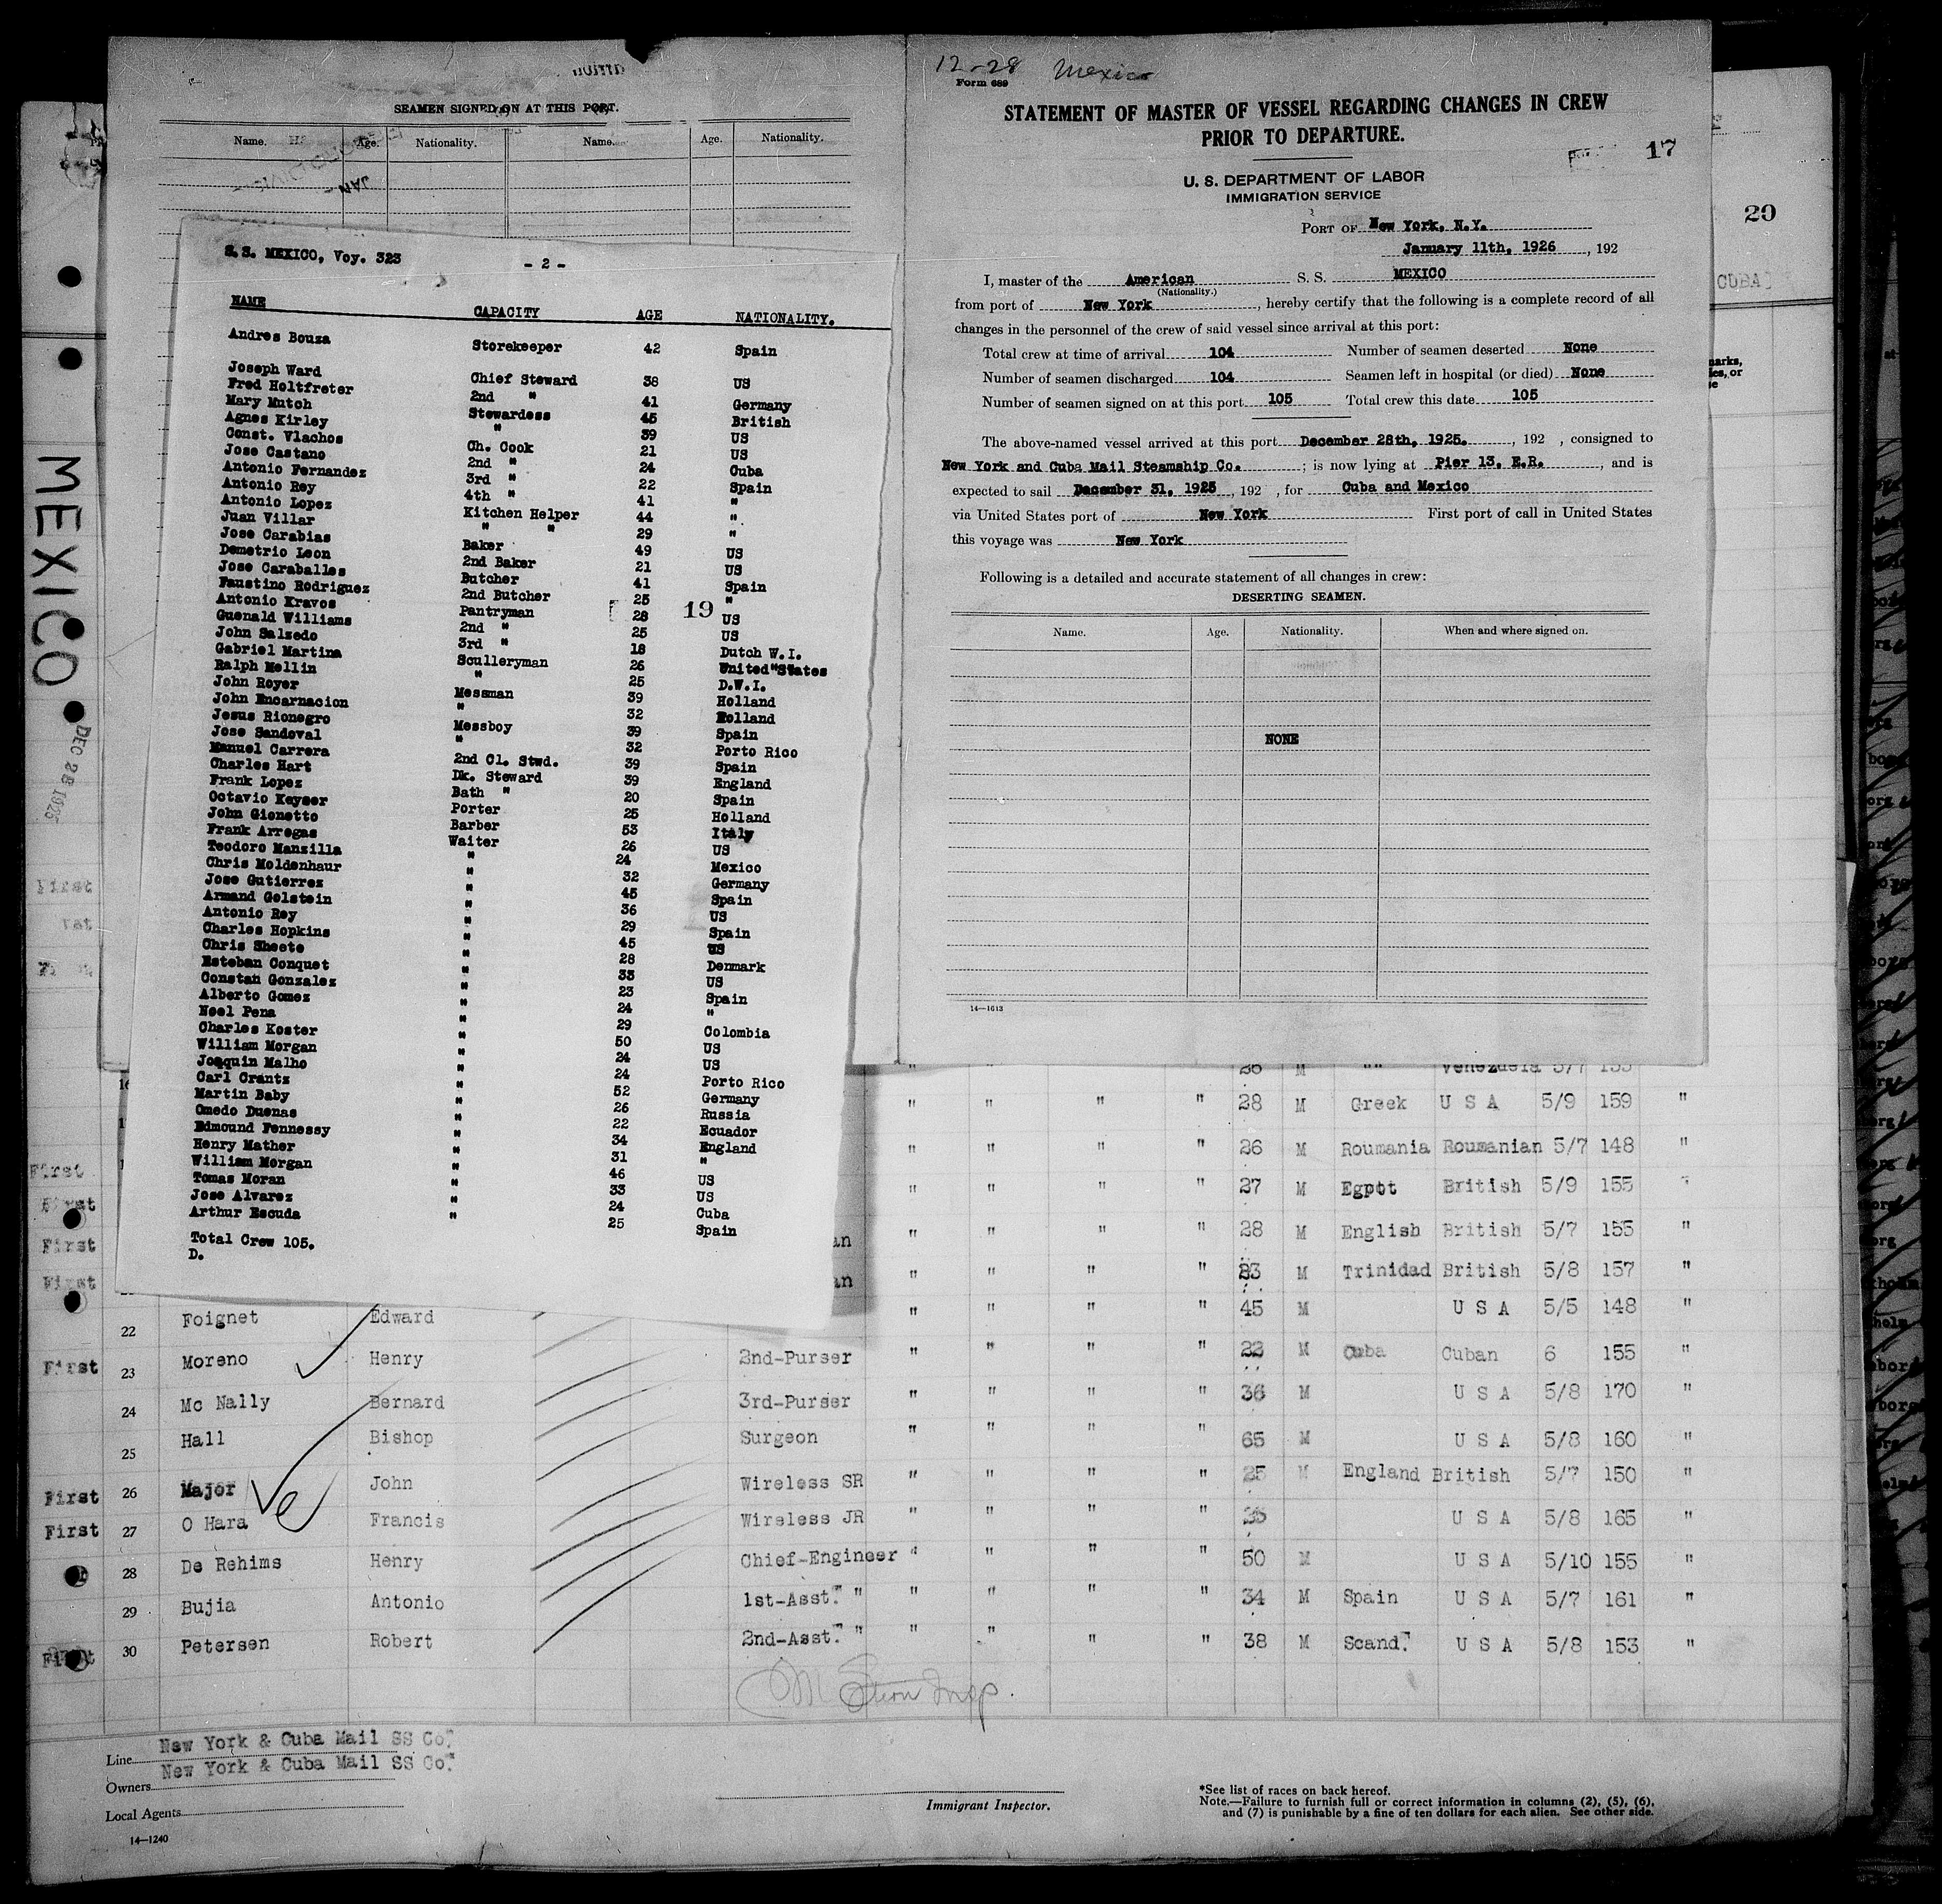 SEAMEN SIGNED ON AT THIS PORT.
Name. Age. Nationality. Name. Age. Nationality.
S.S. MEXICO, Voy. 323 - 2 -
NAME CAPACITY AGE NATIONALITY.
Andres Bouza Storekeeper 42 Spain
Joseph Ward Chief Steward 38 US
Fred Holtfreter 2nd " 41 Germany
Mary Mutch Stewardess 45 British
Agnes Kirley " 39 US
Const. Vlachos Ch. Cook 21 US
Jose Castano 2nd " 24 Cuba
Antonio Fernandez 3rd " 22 Spain
Antonio Rey 4th " 41 "
Antonio Lopez Kitchen Helper 44 "
Juan Villar " " 29 "
Jose Carabias Baker 49 US
Demetrio Leon 2nd Baker 21 US
Jose Caraballes Butcher 41 Spain
Faustino Rodriguez 2nd Butcher 25 "
Antonio Kravos Pantryman 28 US
Guenald Williams 2nd " 25 US
John Salzedo 3rd " 18 Dutch W.I.
Gabriel Martina Sculleryman 26 United States
Ralph Mellin " 25 D.W.I.
John Royer Messman 39 Holland
John Encarnacion " 32 Holland
Jesus Rionegro Messboy 39 Spain
Jose Sandoval " 32 Porto Rico
Manuel Carrera 2nd Cl. Stwd. 39 Spain
Charles Hart Dk. Steward 39 England
Frank Lopez Bath " 20 Spain
Octavio Keyser Porter 25 Holland
John Gionetto Barber 53 Italy
Frank Arregas Waiter 26 US
Teodoro Manzilla " 24 Mexico
Chris Moldenhaur " 32 Germany
Jose Gutierrez " 45 Spain
Armand Golstein " 36 US
Antonio Rey " 29 Spain
Charles Hopkins " 45 US
Chris Sheete " 28 Denmark
Esteban Conquet " 33 US
Constan Gonzalez " 23 Spain
Alberto Gomez " 24 "
Noel Pena " 29 Colombia
Charles Koster " 50 US
William Morgan " 24 US
Joaquin Malho " 24 Porto Rico
Carl Crantz " 52 Germany
Martin Baby " 26 Russia
Omedo Duenas " 22 Ecuador
Edmound Fennessy " 34 England
Henry Mather " 31 "
William Morgan " 46 US
Tomas Moran " 33 US
Jose Alvarez " 24 Cuba
Arthur Escuda " 25 Spain
Total Crew 105.
D.
19
12-28 Mexico
Form 689
STATEMENT OF MASTER OF VESSEL REGARDING CHANGES IN CREW
PRIOR TO DEPARTURE.
17
U. S. DEPARTMENT OF LABOR
IMMIGRATION SERVICE
PORT OF New York, N.Y.
January 11th, 1926, 192
I, master of the American S. S. MEXICO
(Nationality.)
from port of New York, hereby certify that the following is a complete record of all
changes in the personnel of the crew of said vessel since arrival at this port:
Total crew at time of arrival 104 Number of seamen deserted None
Number of seamen discharged 104 Seamen left in hospital (or died) None
Number of seamen signed on at this port 105 Total crew this date 105
The above-named vessel arrived at this port December 28th, 1925. , 192 , consigned to
New York and Cuba Mail Steamship Co. ; is now lying at Pier 13, E.R. , and is
expected to sail December 31, 1925 , 192 , for Cuba and Mexico
via United States port of New York First port of call in United States
this voyage was New York
Following is a detailed and accurate statement of all changes in crew:
DESERTING SEAMEN.
Name. Age. Nationality. When and where signed on.
NONE
14—1613
20
CUBA
MEXICO
DEC 28 1925
" " " " 28 M Greek U S A 5/9 159 "
" " " " 26 M Roumania Roumanian 5/7 148 "
" " " " 27 M Egpot British 5/9 155 "
" " " " 28 M English British 5/7 155 "
First " " " " 23 M Trinidad British 5/8 157 "
22 Foignet Edward " " " " 45 M U S A 5/5 148 "
First 23 Moreno Henry 2nd-Purser " " " " 22 M Cuba Cuban 6 155 "
24 Mc Nally Bernard 3rd-Purser " " " " 36 M U S A 5/8 170 "
25 Hall Bishop Surgeon " " " " 65 M U S A 5/8 160 "
First 26 Major John Wireless SR " " " " 25 M England British 5/7 150 "
First 27 O Hara Francis Wireless JR " " " " U S A 5/8 165 "
28 De Rehims Henry Chief-Engineer " " " " 50 M U S A 5/10 155 "
29 Bujia Antonio 1st-Asst. " " " " " 34 M Spain U S A 5/7 161 "
First 30 Petersen Robert 2nd-Asst. " " " " " 38 M Scand. U S A 5/8 153 "
Line New York & Cuba Mail SS Co.
Owners New York & Cuba Mail SS Co.
Local Agents
14—1240
Immigrant Inspector.
*See list of races on back hereof.
Note.—Failure to furnish full or correct information in columns (2), (5), (6),
and (7) is punishable by a fine of ten dollars for each alien. See other side.